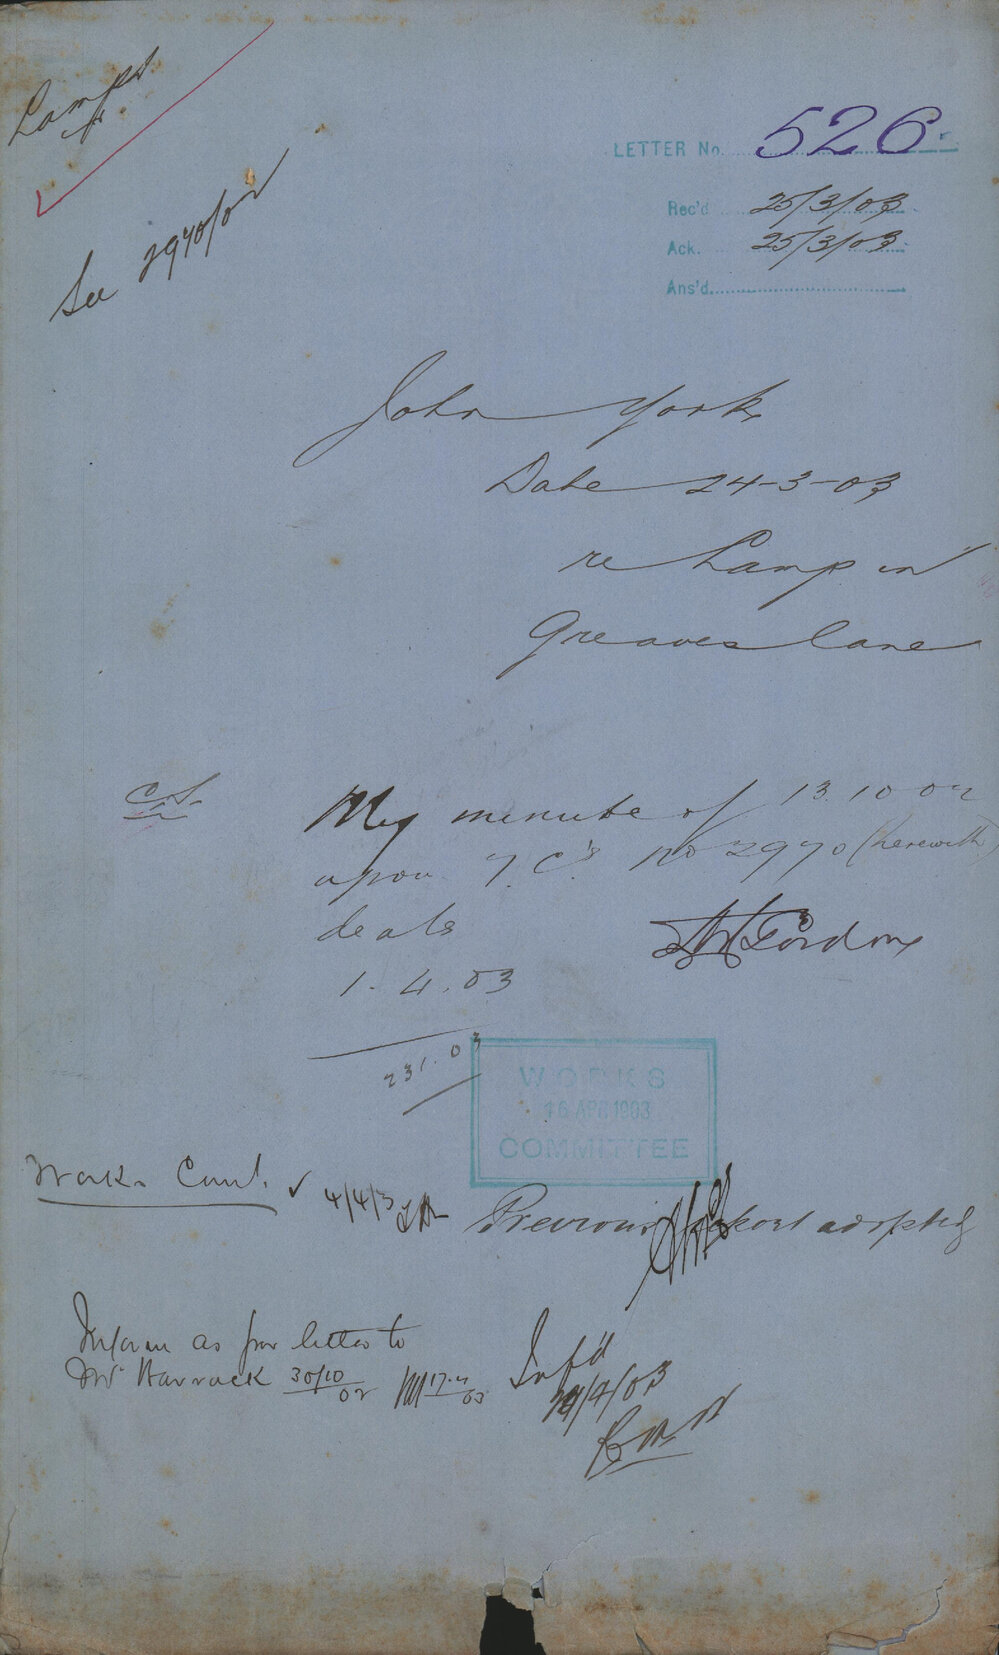 Lamps
See 2970/02
LETTER No. 526.
Rec'd 25/3/03
Ack. 25/3/03
Ans'd
John York
Date 24-3-03
re Lamp in
Greaves Lane
C.S.
My minute of 13.10.02
upon T.C's no 2970 (herewith)
deals
Gordon
1.4.03
231.03
WORKS
16 APR 1903
COMMITTEE
Works Comt. 4/4/3
Previous report adopted
Inform as per letter to
Mr Barrack 30/10/02 17.4/03
Inf'd
/4/03